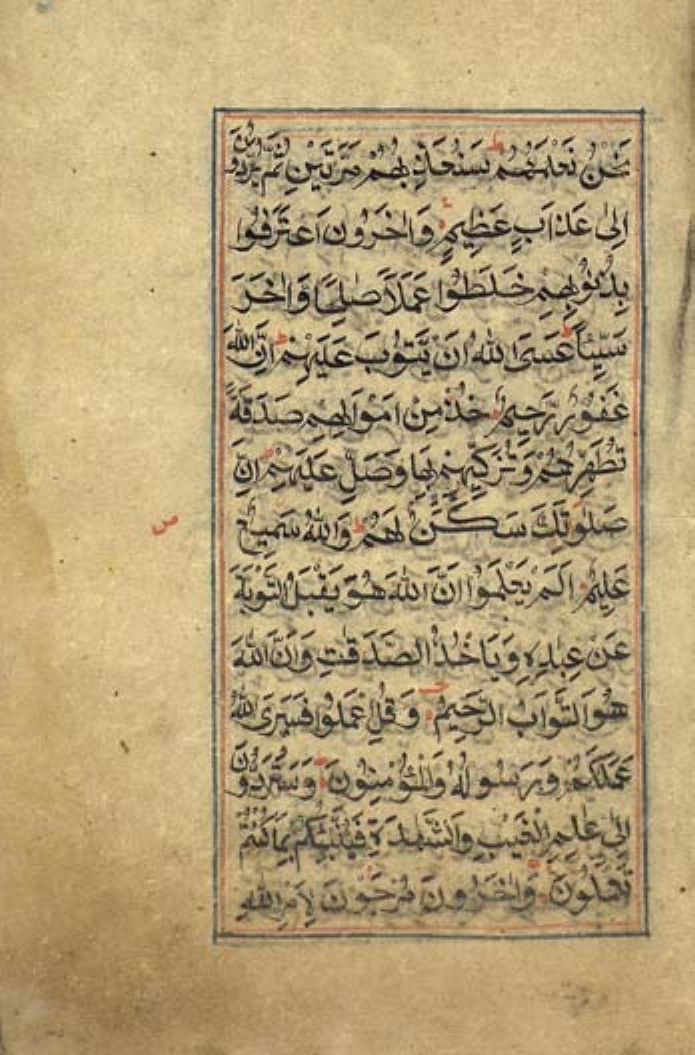 نَحْنُ نَعْلَمُهُمْ سَنُعَذِّبُهُمْ مَرَّتَيْنِ ثُمَّ يُرَدُّونَ
اِلٰى عَذَابٍ عَظِيمٍ وَاٰخَرُونَ اعْتَرَفُوا
بِذُنُوبِهِمْ خَلَطُوا عَمَلًا صَالِحًا وَاٰخَرَ
سَيِّئًا عَسَى اللهُ اَنْ يَتُوبَ عَلَيْهِمْ اِنَّ اللهَ
غَفُورٌ رَحِيمٌ خُذْ مِنْ اَمْوَالِهِمْ صَدَقَةً
تُطَهِّرُهُمْ وَتُزَكِّيهِمْ بِهَا وَصَلِّ عَلَيْهِمْ اِنَّ
صَلٰوتَكَ سَكَنٌ لَهُمْ وَاللهُ سَمِيعٌ
س
عَلِيمٌ اَلَمْ يَعْلَمُوا اَنَّ اللهَ هُوَ يَقْبَلُ التَّوْبَةَ
عَنْ عِبَادِهِ وَيَاْخُذُ الصَّدَقٰتِ وَاَنَّ اللهَ
هُوَ التَّوَّابُ الرَّحِيمُ وَقُلِ اعْمَلُوا فَسَيَرَى اللهُ
عَمَلَكُمْ وَرَسُولُهُ وَالْمُؤْمِنُونَ وَسَتُرَدُّونَ
اِلٰى عٰلِمِ الْغَيْبِ وَالشَّهٰدَةِ فَيُنَبِّئُكُمْ بِمَا كُنْتُمْ
تَعْمَلُونَ وَاٰخَرُونَ مُرْجَوْنَ لِاَمْرِ اللهِ